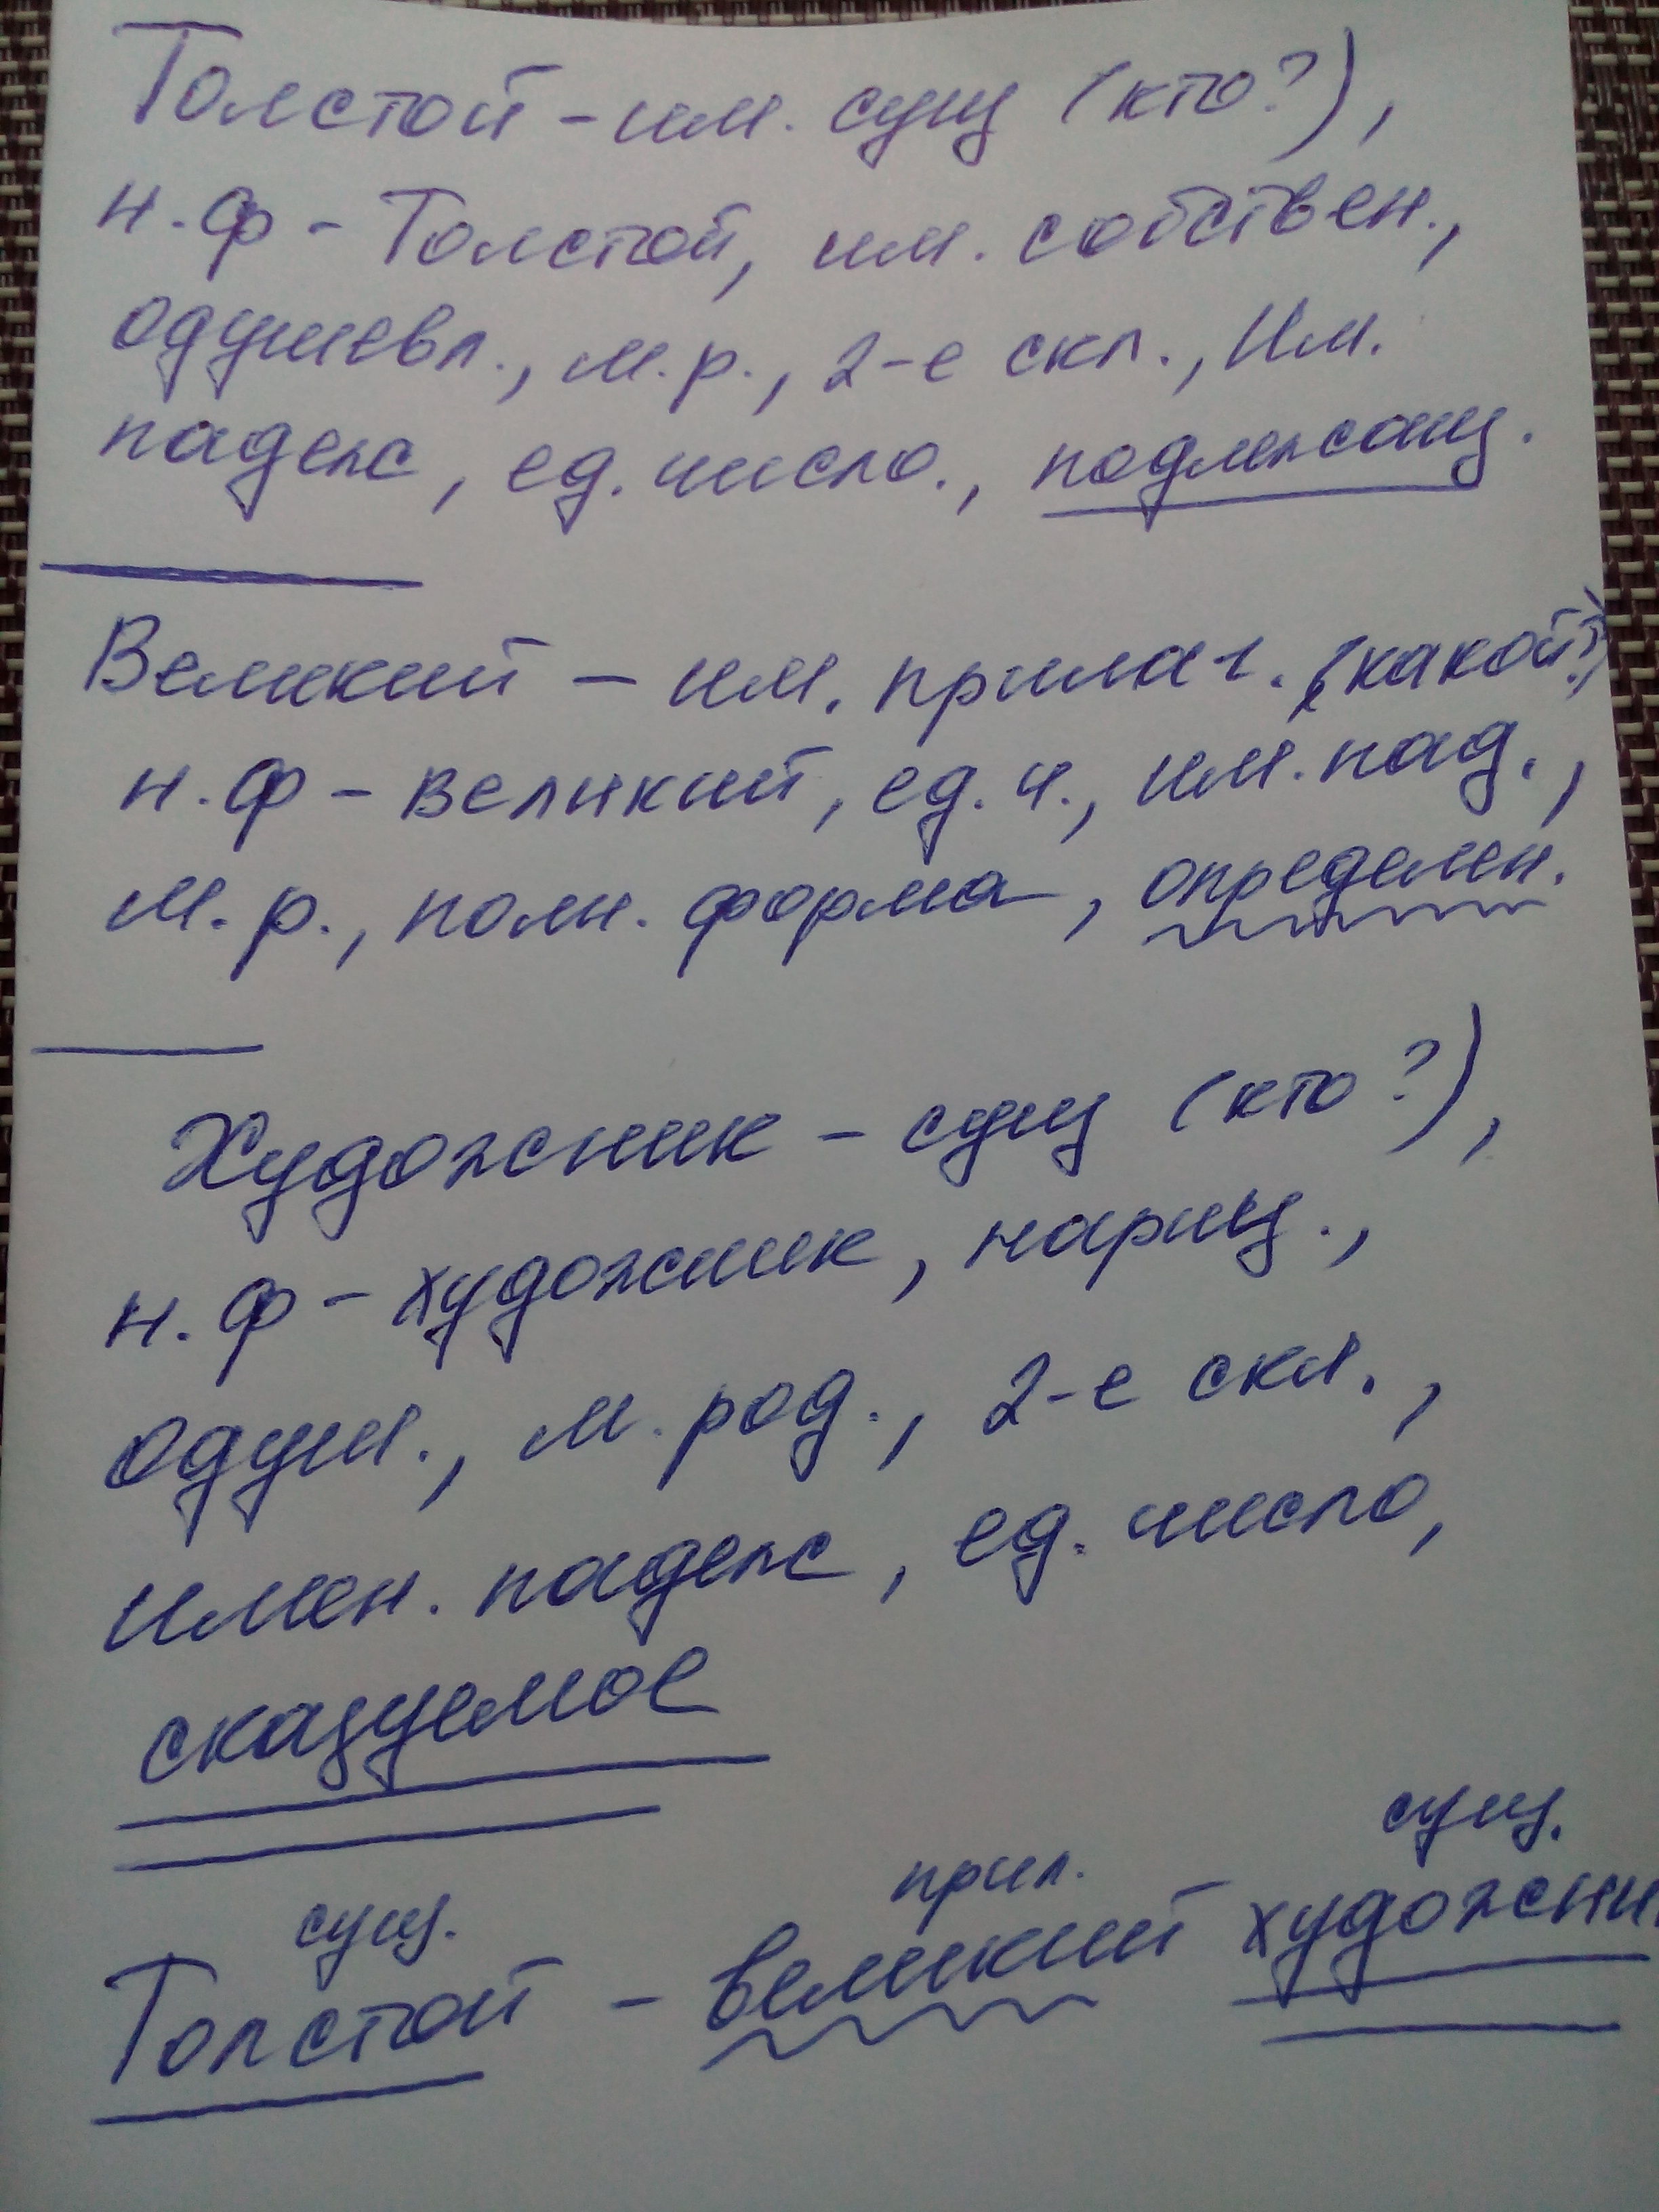 Толстой - им. сущ (кто?),
н.ф - Толстой, им. собствен.,
одушевл., м.р., 2-е скл., Им.
падеж, ед. число., подлежащ.
Великий - им. прилаг. (какой?)
н.ф - великий, ед.ч., им. пад.,
м.р., полн. форма, определен.
Художник - сущ (кто?),
н.ф - художник, нариц.,
одуш., м. род., 2-е скл.,
имен. падеж, ед. число,
сказуемое
сущ. прил. сущ.
Толстой - великий художни